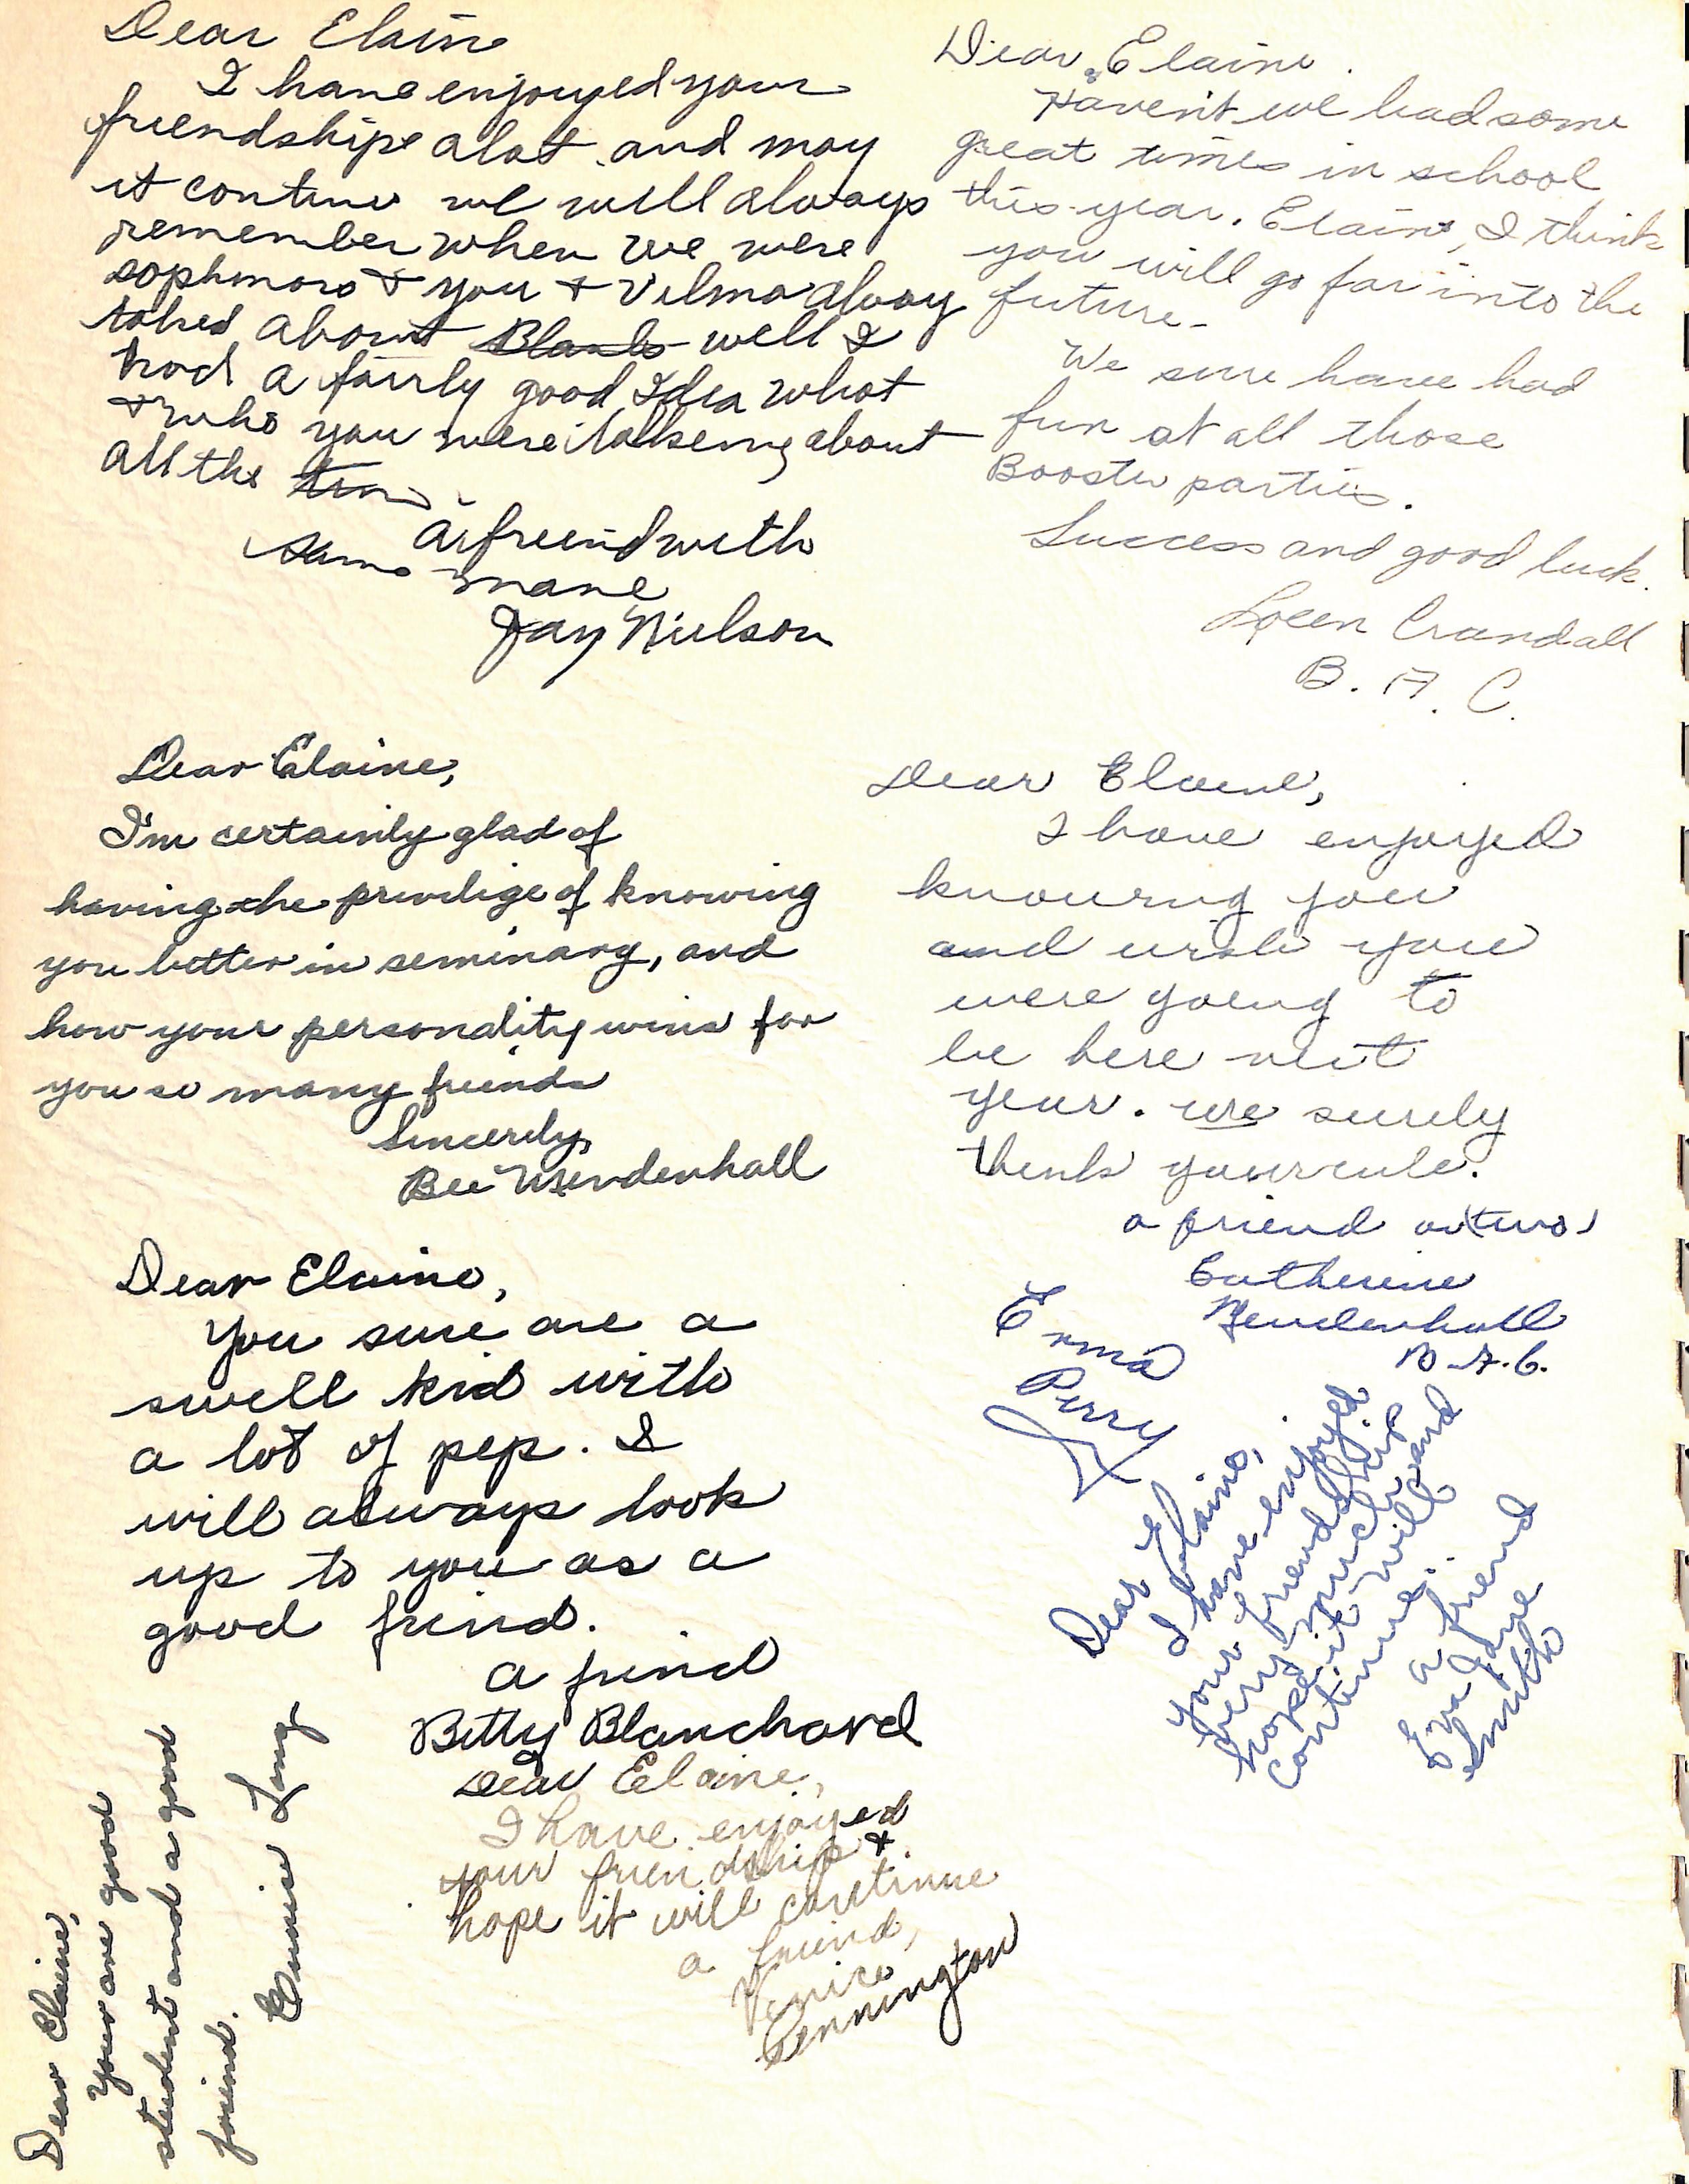 Dear Elaine
I have enjoyed your
friendship alot and may
it continue we will always
remember when we were
sophmors & you & Velma alway
talked about Blanks well I
had a fairly good Idea what
& who you were talkeing about
all the time
As freind with
same name
Jay Nielson
Dear Elaine.
Haven't we had some
great times in school
this year. Elaine, I think
you will go far into the
future.
We sure have had
fun at all those
Booster parties.
Success and good luck.
Loeen Crandall
B. A. C.
Dear Elaine,
I'm certainly glad of
having the privilige of knowing
you better in seminary, and
how your personality wins for
you so many friends
Sincerely,
Bee Mendenhall
Dear Elaine,
I have enjoyed
knowing you
and wish you
were going to
be here next
year. we surely
think your cute.
a friend
Catherine
Mendenhall
B.A.C.
Dear Elaine,
You sure are a
swell kid with
a lot of pep. I
will always look
up to you as a
good friend.
a friend
Betty Blanchard
Erma
Perry
Dear Elaine,
I have enjoyed
your friendship
very much and
hope it will
continue.
a friend
Eva Jane
Smith
Dear Elaine,
I have enjoyed
your friendship &
hope it will continue
a friend,
Venice
Pennington
Dear Elaine,
Your are good
student and a good
friend.
Eunise Long